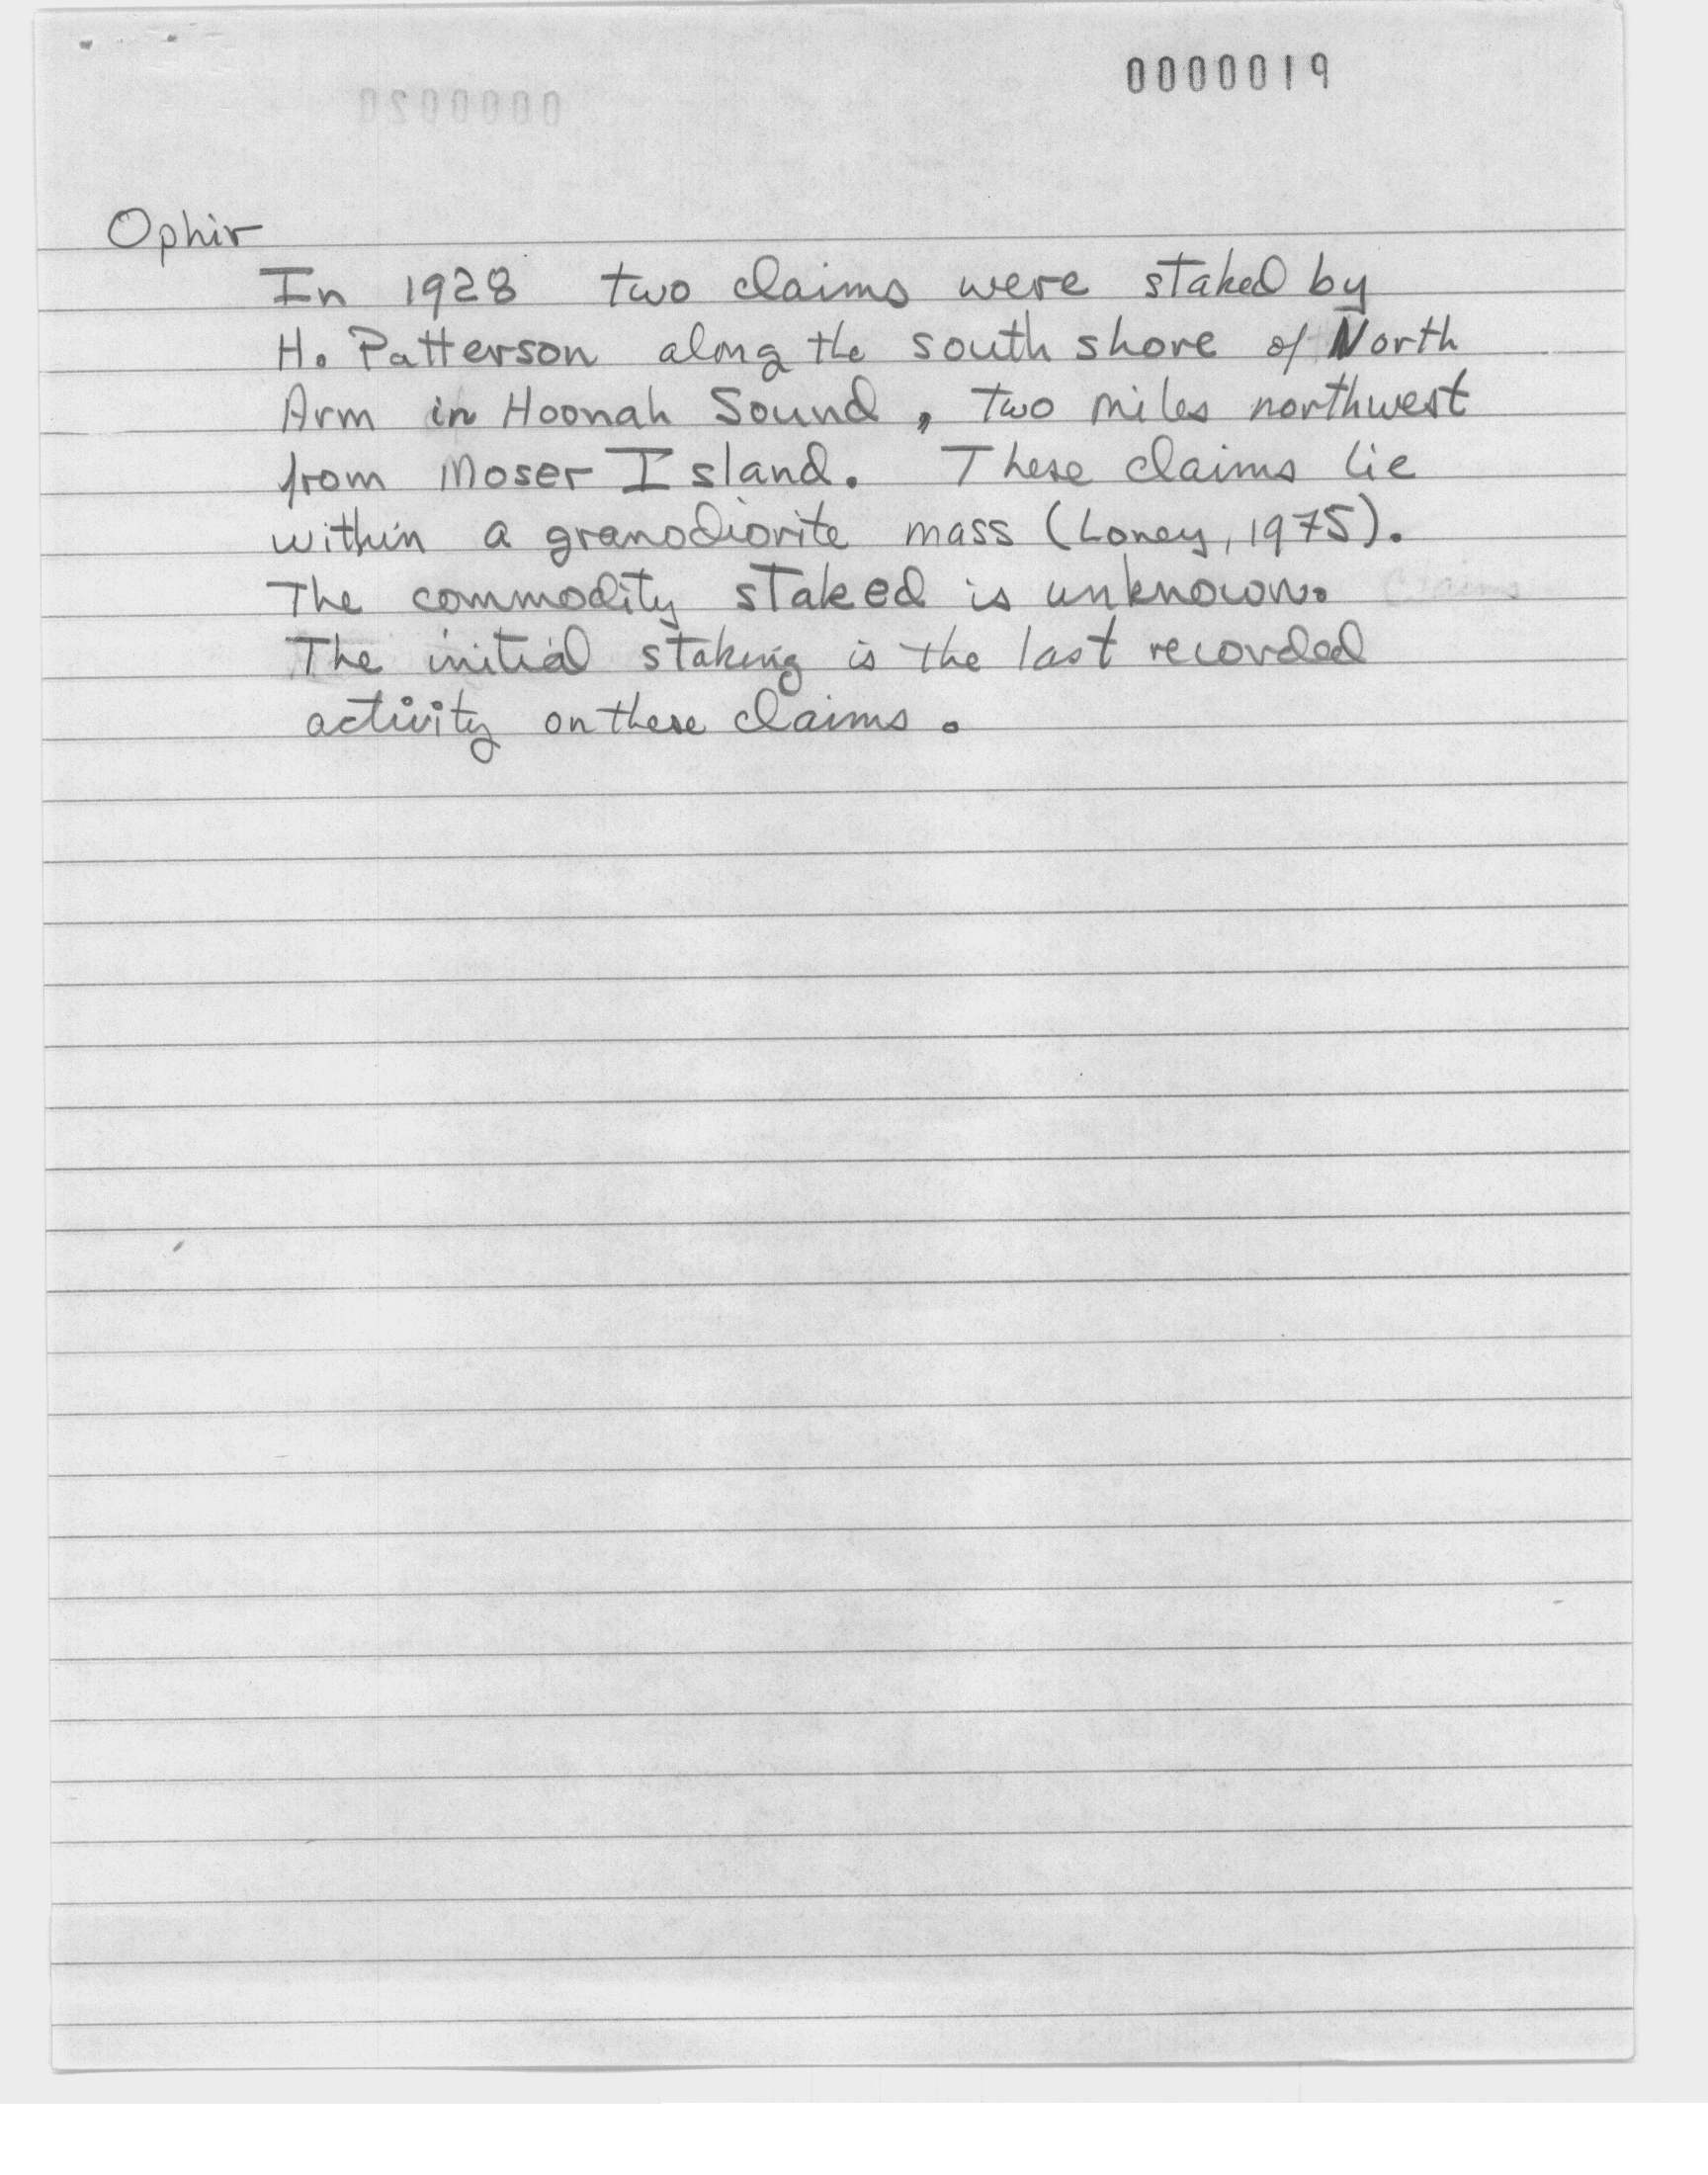 0000019
0000020
Ophir
In 1928 two claims were staked by
H. Patterson along the south shore of North
Arm in Hoonah Sound, two miles northwest
from Moser Island. These claims lie
within a granodiorite mass (Loney, 1975).
The commodity staked is unknown. Claims
The initial staking is the last recorded
activity on these claims.